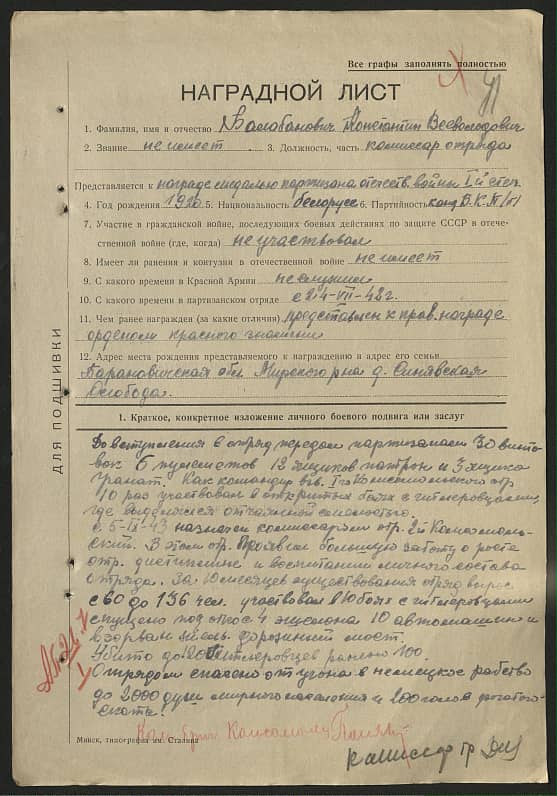 Все графы заполнять полностью
41
НАГРАДНОЙ ЛИСТ
1. Фамилия, имя и отчество Балабанович Константин Всеволодович
2. Звание не имеет 3. Должность, часть комиссар отряда
Представляется к награде медалью партизана отечеств. войны I-й степ.
4. Год рождения 1920 5. Национальность белорусс 6. Партийность канд В.К.П/б/
7. Участие в гражданской войне, последующих боевых действиях по защите СССР в отече-
ственной войне (где, когда) не участвовал
8. Имеет ли ранения и контузии в отечественной войне не имеет
9. С какого времени в Красной Армии не служил
10. С какого времени в партизанском отряде с 24-VII-42 г.
11. Чем ранее награжден (за какие отличия) представлен к прав. награде
орденом красного знамени
12. Адрес места рождения представляемого к награждению и адрес его семьи
Барановичская обл. Мирского р-на д. Синявская
Слобода.
ДЛЯ ПОДШИВКИ
1. Краткое, конкретное изложение личного боевого подвига или заслуг
До вступления в отряд передал партизанам 30 винто-
вок 6 пулеметов 12 ящиков патрон и 3 ящика
гранат. Как командир взв. I го Комсомольского отр
10 раз участвовал в открытых боях с гитлеровцами,
где выделялся отчаянной смелостью.
с 5-IX-43 назначен комиссаром отр. 2й Комсомоль-
ский. В этом отр. Проявил большую заботу о росте
отр. дисциплине и воспитании личного состава
отряда. За 10 месяцев существования отряд вырос
с 60 до 136 чел. участвовал в 10 боях с гитлеровцами
спущено под откос 4 эшелона 10 автомашин и
взорван мост.
Убито до 200 гитлеровцев ранено 100.
Отрядом спасено от угона в немецкое рабство
до 2000 душ мирного населения и 200 голов рогатого
скота.
Минск, типография им. Сталина
Ком. бриг Комсомолец
Комиссар гр